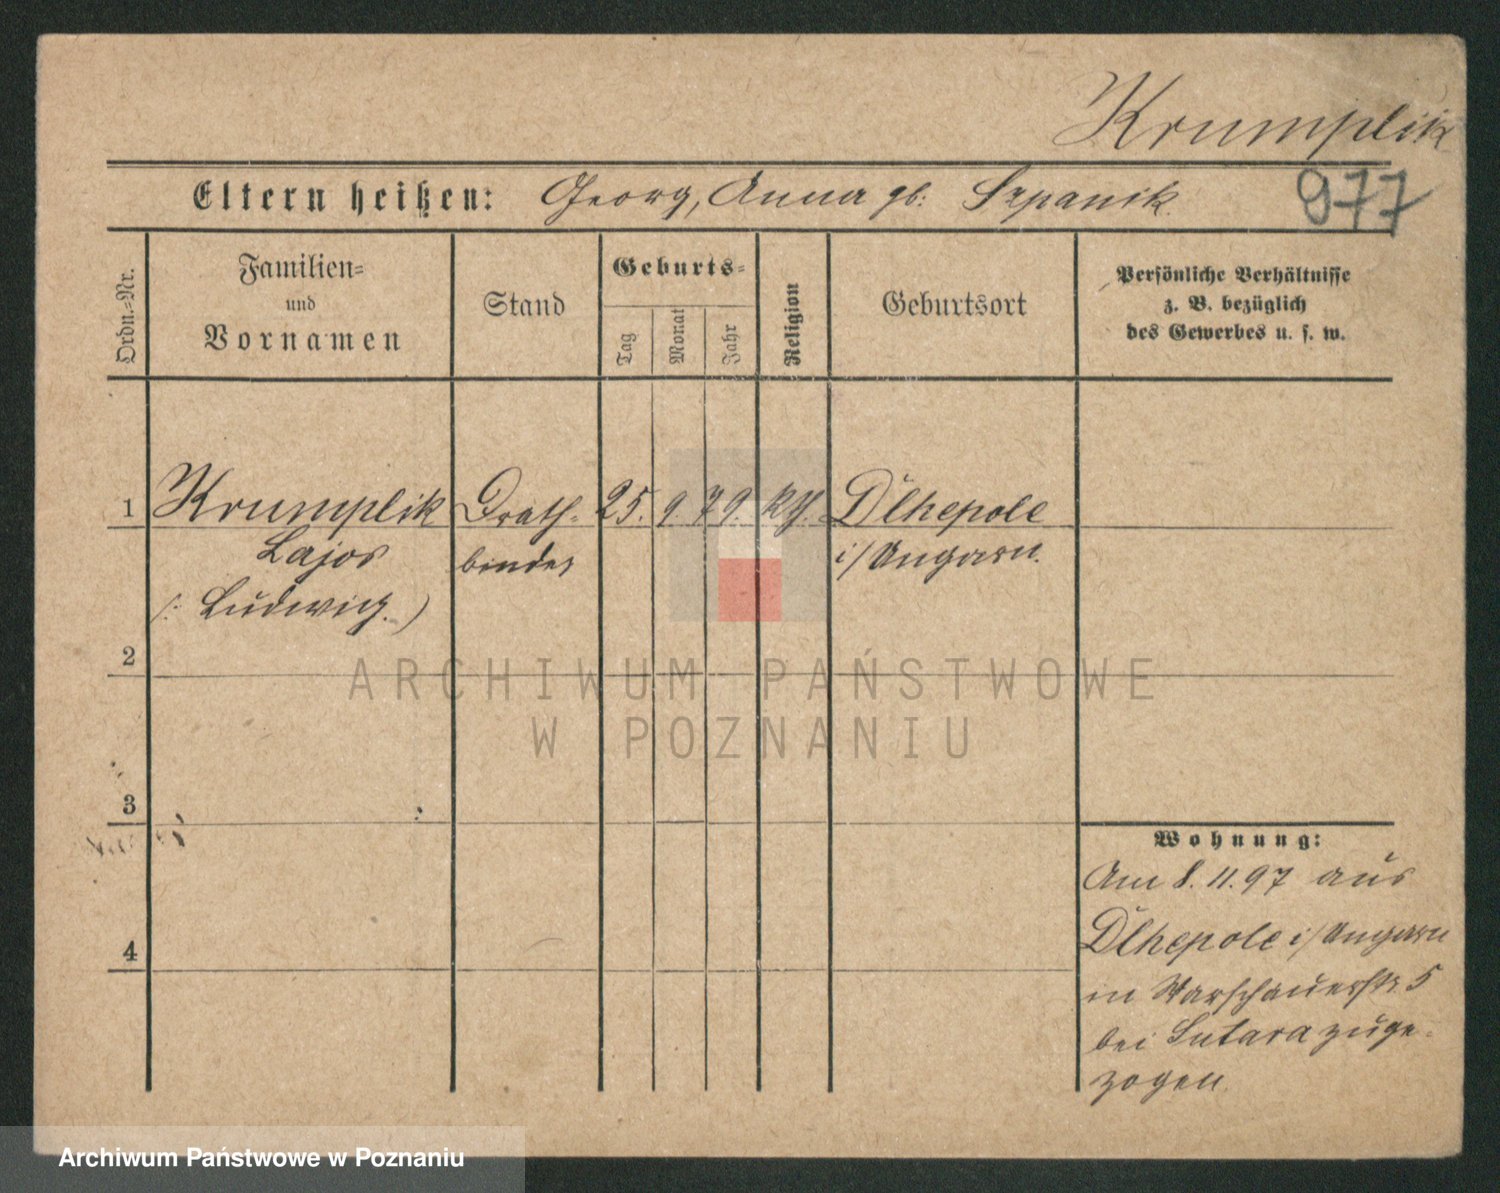 Krumplik
Eltern heißen: Georg, Anna gb. Szpanik.
977
Ordn.-Nr.
Familien-
und
Vornamen
Stand
Geburts-
Tag
Monat
Jahr
Religion
Geburtsort
Persönliche Verhältnisse
z. B. bezüglich
des Gewerbes u. s. w.
1 Krumplik Drath- 25. 9. 79. kth. Dlhepole
Lajos binder i/Ungarn.
(: Ludwig.)
2
3
4
Wohnung:
Am 8. 11. 97 aus
Dlhepole i/Ungarn
in Warschauerstr. 5
bei Sutara zuge-
zogen
ARCHIWUM PAŃSTWOWE
W POZNANIU
Archiwum Państwowe w Poznaniu